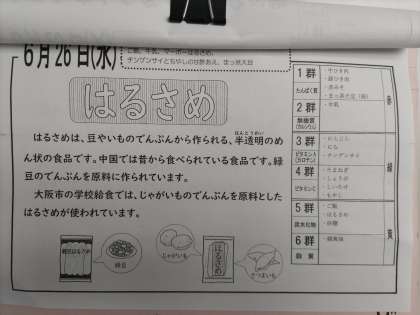 6月26日(水)
ご飯、牛乳、マーボーはるさめ、
チンゲンサイともやしの甘酢あえ、まっ茶大豆
はるさめ
はるさめは、豆やいものでんぷんから作られる、半透明のめ
はんとうめい
ん状の食品です。中国では昔から食べられている食品です。緑
豆のでんぷんを原料に作られています。
大阪市の学校給食では、じゃがいものでんぷんを原料とした
はるさめが使われています。
緑豆はるさめ
緑豆
じゃがいも
はるさめ
さつまいも
1群
たんぱく質
・牛ひき肉
・豚ひき肉
・赤みそ
2群
無機質
(カルシウム)
・牛乳
3群
ビタミンA
(カロテン)
・にんじん
・にら
・チンゲンサイ
4群
ビタミンC
・たまねぎ
・しょうが
・しいたけ
・もやし
5群
炭水化物
・ご飯
・はるさめ
・砂糖
6群
脂質
赤
緑
黄